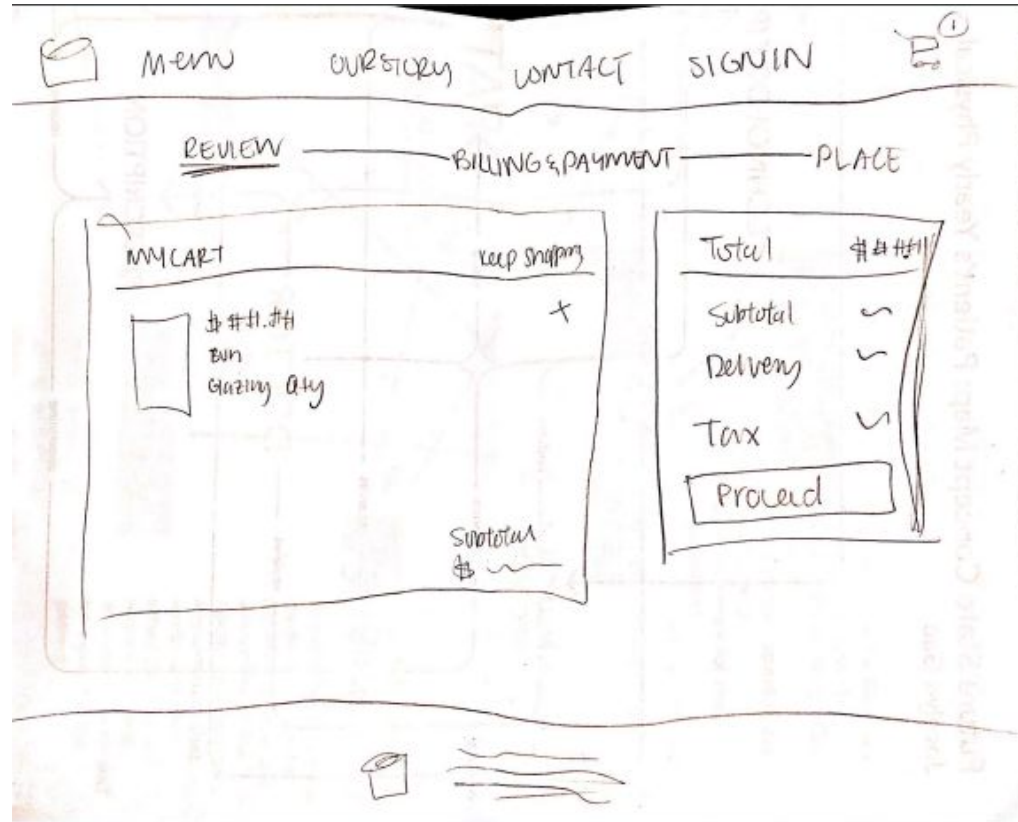 Menu OUR STORY CONTACT SIGN IN 1
REVIEW BILLING & PAYMENT PLACE
MY CART keep shopping
$ ##.##
Bun
Glazing Qty
Subtotal
$
Total $ ###
Subtotal
Delivery
Tax
Proceed